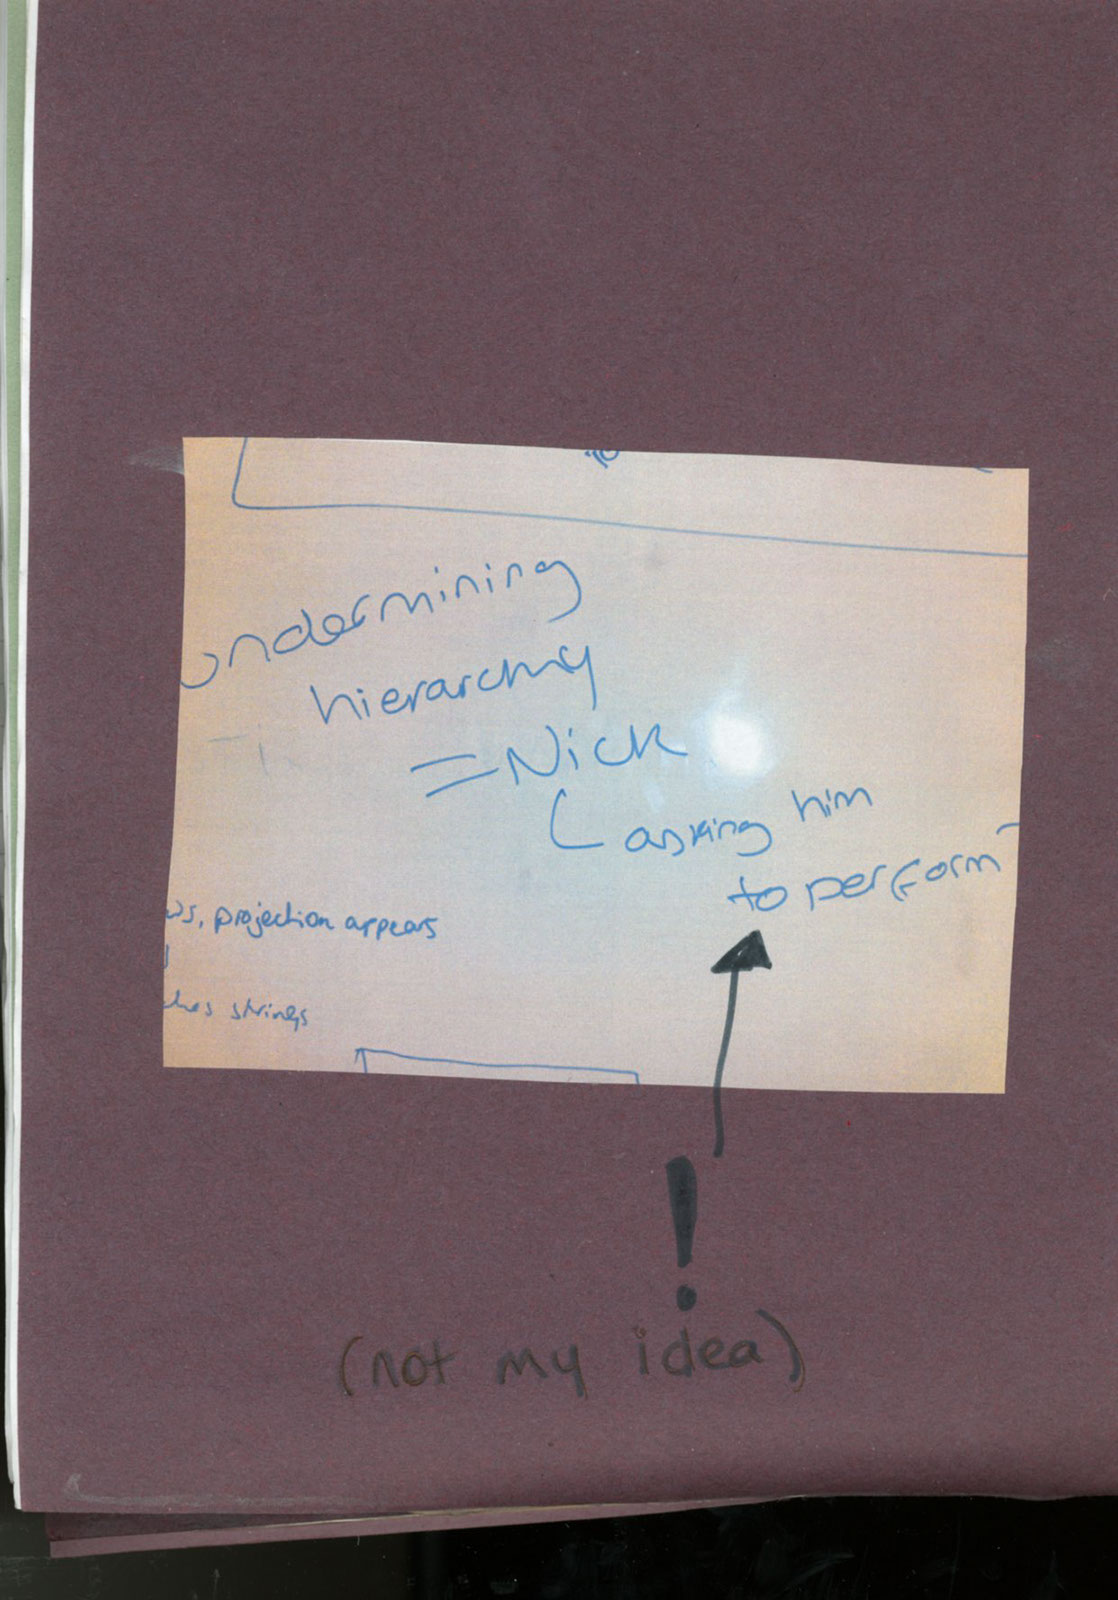 undermining
hierarchy
= Nick
asking him
to perform
projection appears
strings
!
(not my idea)